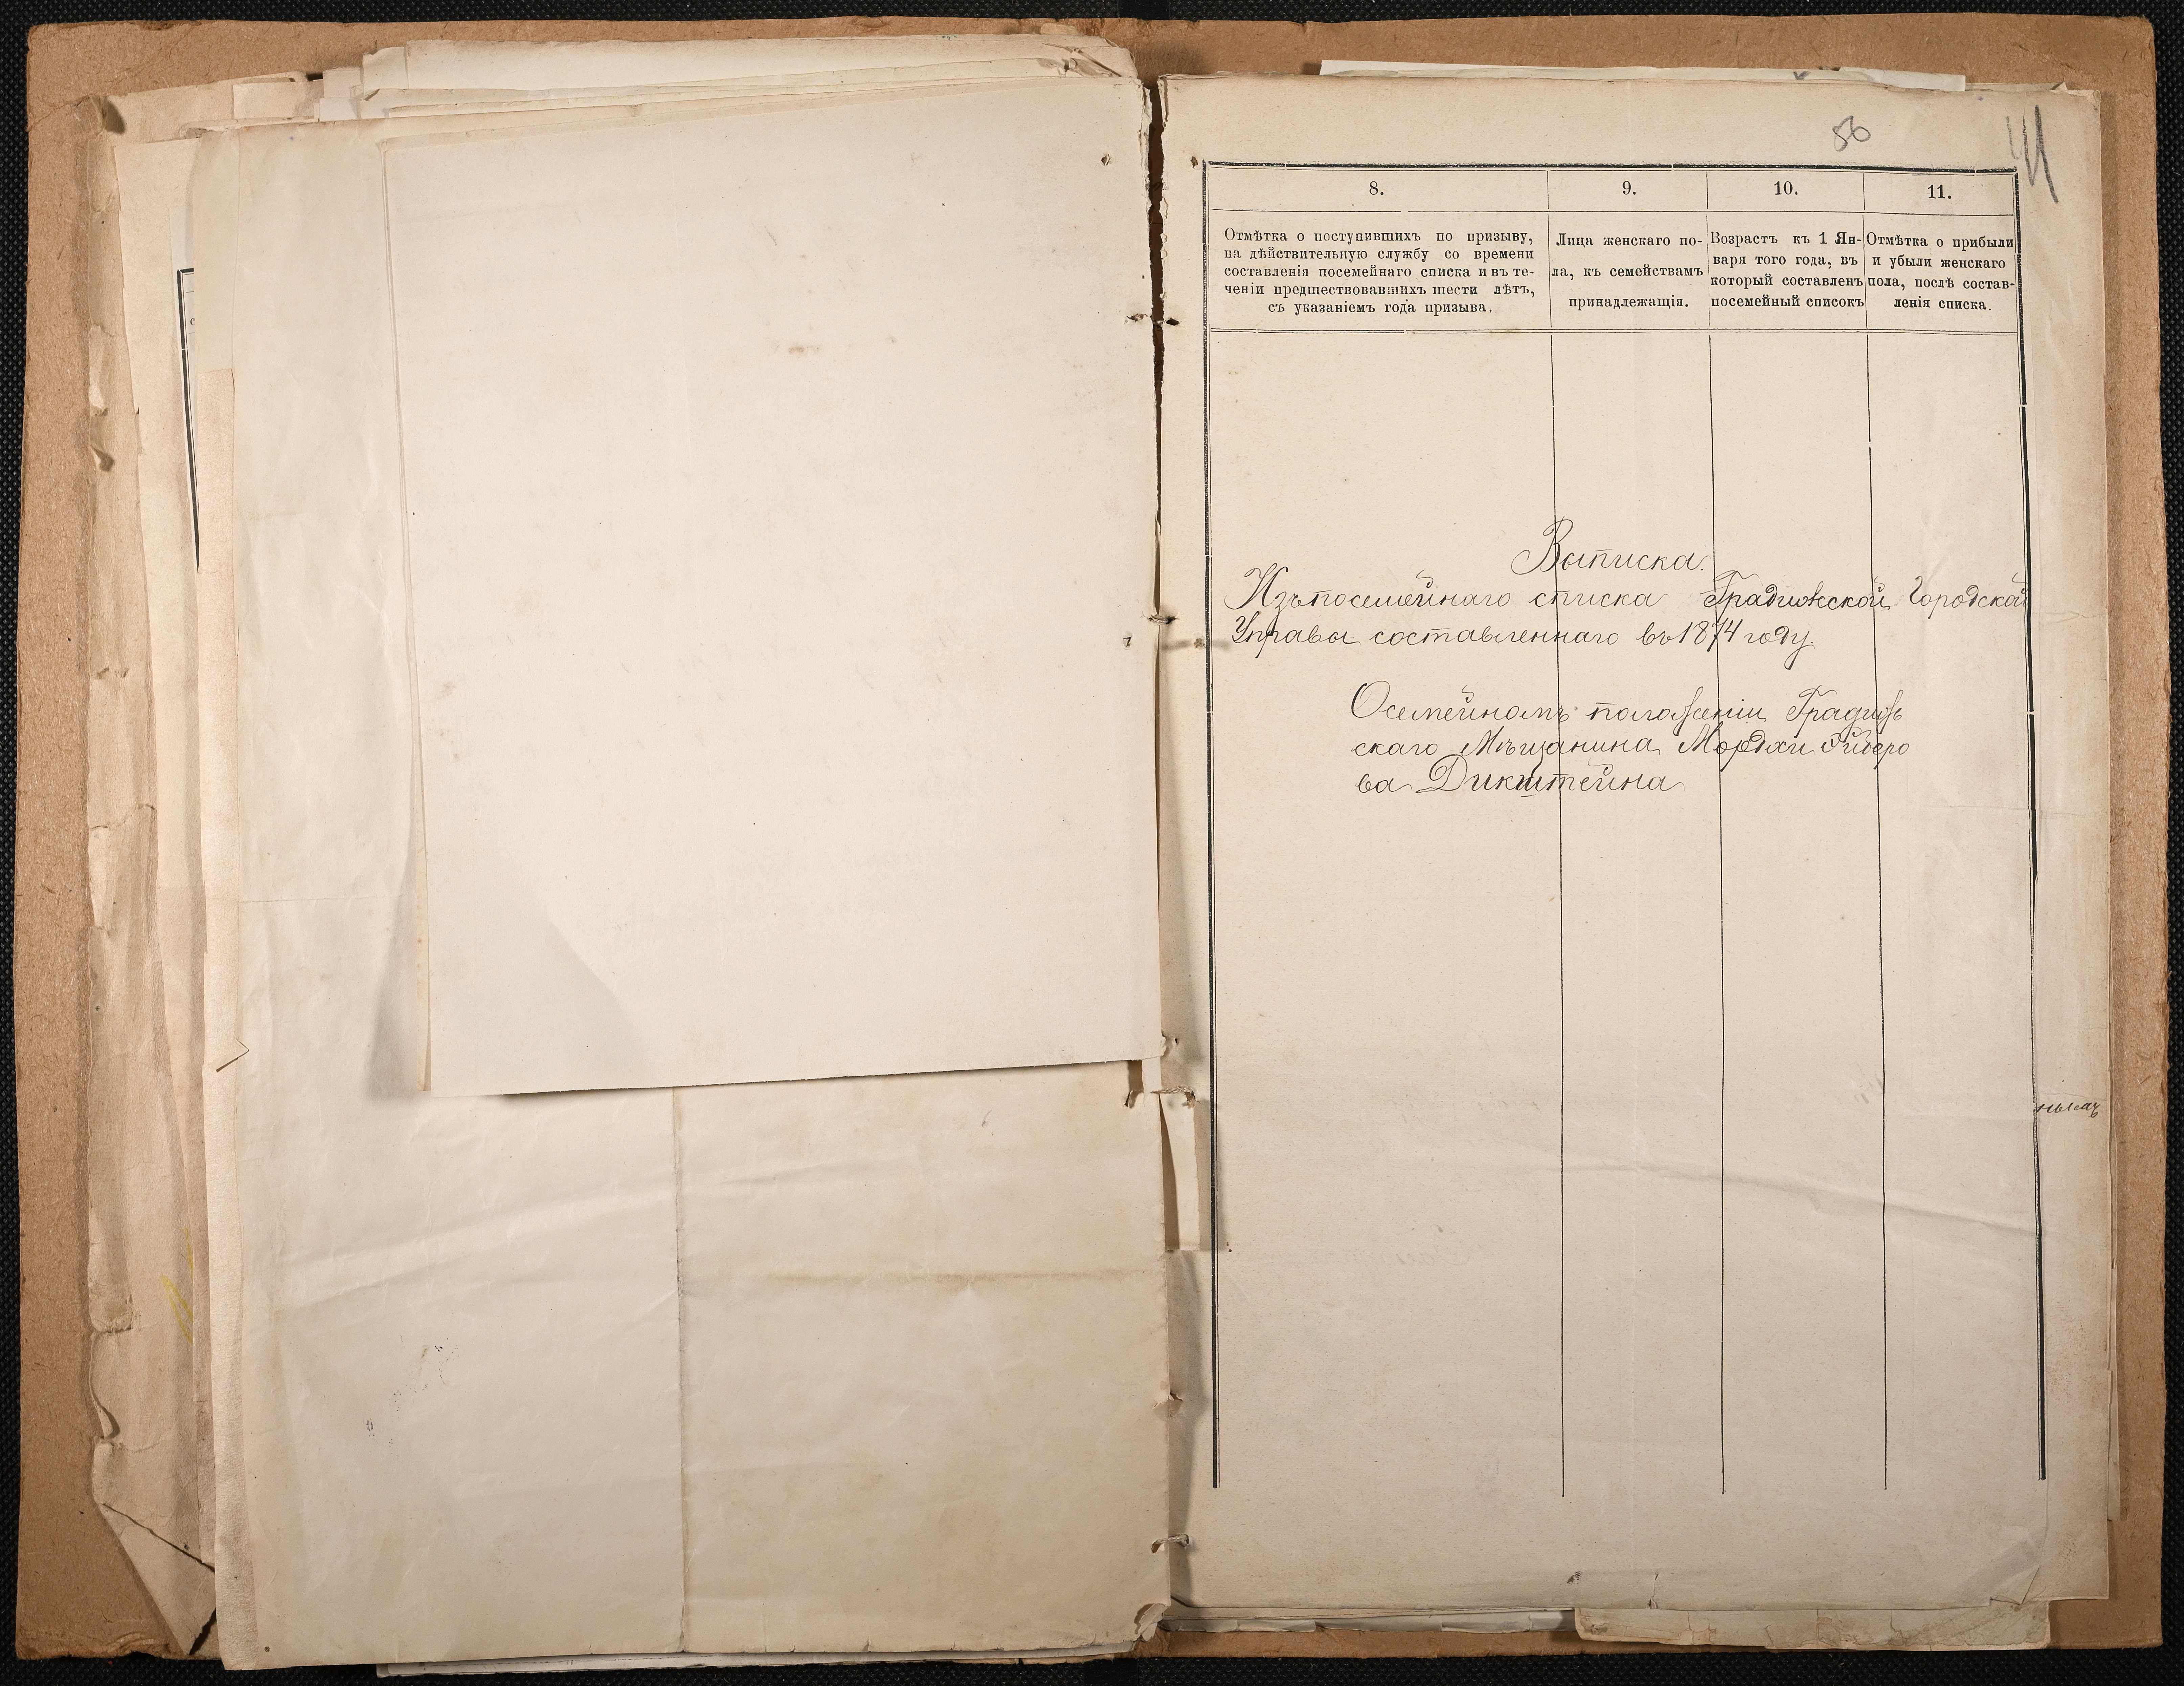 50
41
8.
9.
10.
11.
Отмѣтка о поступившихъ по призыву,
на дѣйствительную службу со времени
составленія посемейнаго списка и въ те-
ченіи предшествовавшихъ шести лѣтъ,
съ указаніемъ года призыва.
Лица женскаго по-
ла, къ семействамъ
принадлежащія.
Возрастъ къ 1 Ян-
варя того года, въ
который составленъ
посемейный списокъ
Отмѣтка о прибыли
и убыли женскаго
пола, послѣ состав-
ленія списка.
Выписка.
Изъ посемейнаго списка Градижской Городской
Управы составленнаго въ 1874 году.
О семейномъ положеніи Градиж
скаго Мѣщанина Мордхи
ва Дикштейна